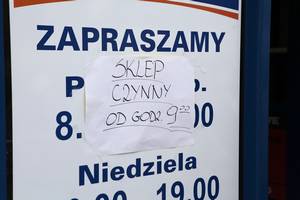 ZAPRASZAMY
SKLEP
CZYNNY
OD GODZ. 9 00
8.
Niedziela
19.00